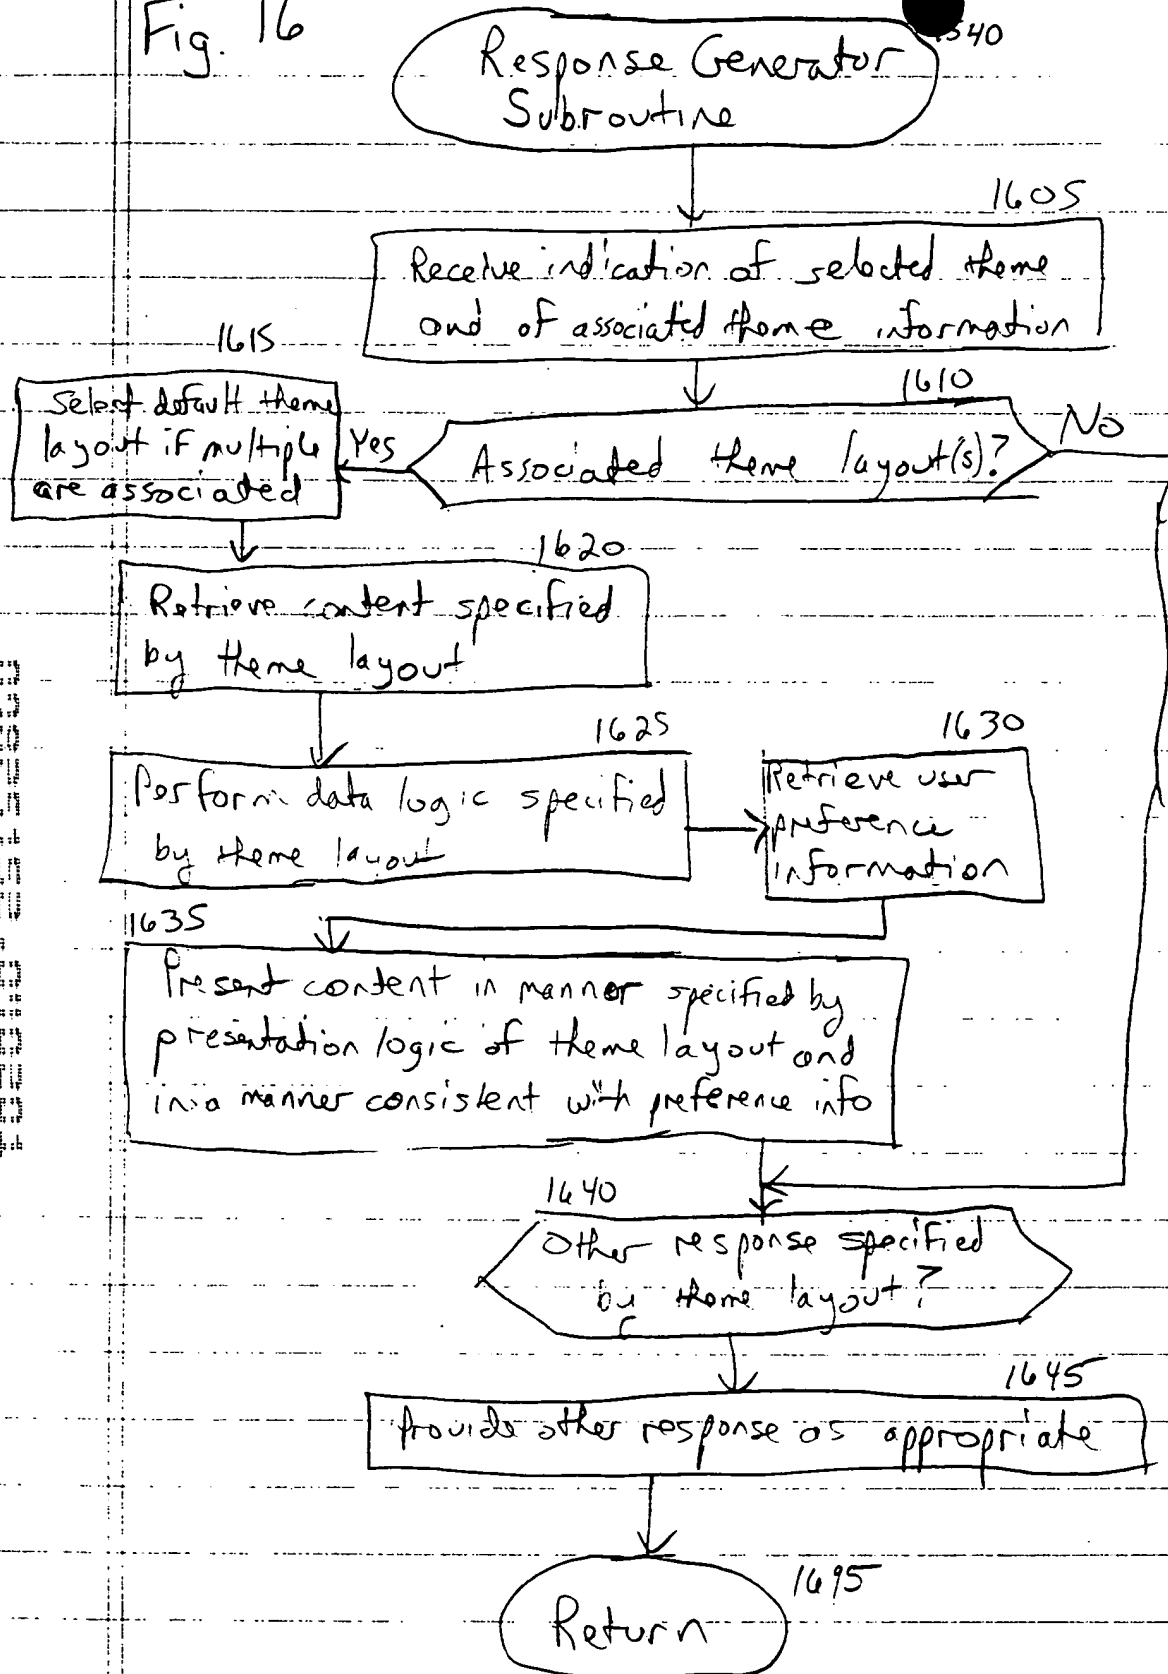 Fig. 16
Response Generator
Subroutine
1605
Receive indication of selected theme
and of associated theme information
1610
Associated theme layout(s)?
Yes
No
1615
Select default theme
layout if multiple
are associated
1620
Retrieve content specified
by theme layout
1625
Perform data logic specified
by theme layout
1630
Retrieve user
preference
information
1635
Present content in manner specified by
presentation logic of theme layout and
in a manner consistent with preference info
1640
Other response specified
by theme layout?
1645
Provide other response as appropriate
1695
Return